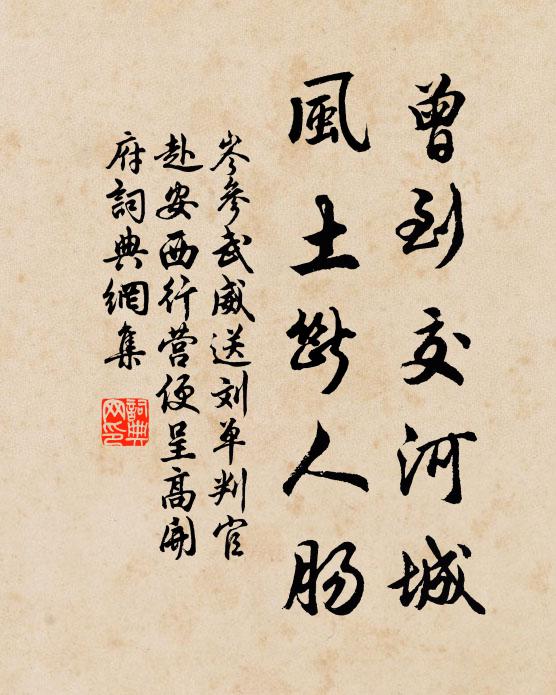 曾到交河城
風土斷人腸
岑參武威送刘单判官
赴安西行营便呈高開
府詞典網集
詞典
网印